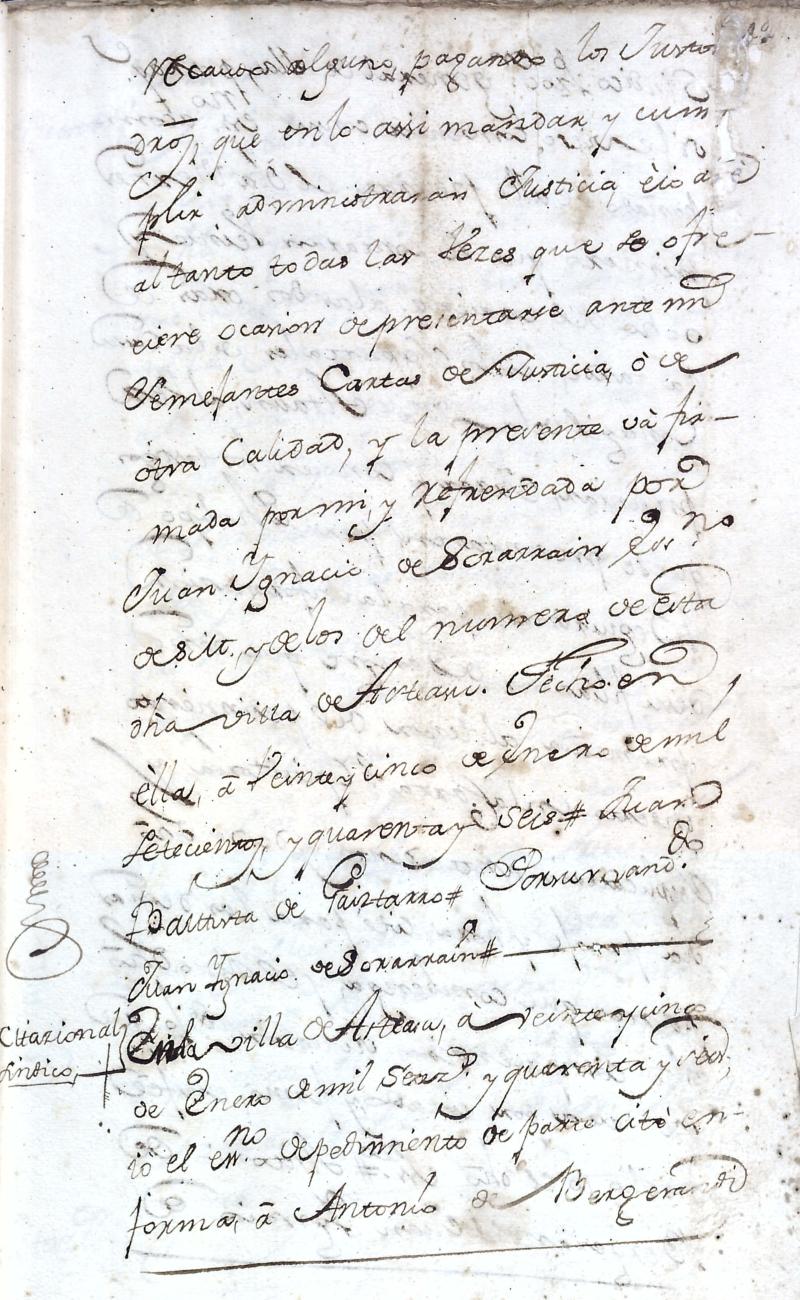 recauso alguno, pagando los Justos
dros, que enlo assi mandar y cum
plir administraran Justicia, è io a
al tanto todas las Vezes que se ofre-
ciere ocasion de presentarse ante mi
Semejantes Cartas de Justicia, ò de
òtra Calidad, y la presente và fir-
mada por mi, y Refrendada por
Juan Ygnacio de Sorarrain ess.no
de S.M. y de los del numero de esta
dha villa de Asteasu. Fecho en
èlla, à Veinte y cinco de Enero de mil
setecientos, y quarenta y seis # Juan
Bautista de Gaiztarro # Por su mand.do
Juan Ygnacio de Sorarrain #
Citazion al
Sindico
En la villa de Asteasu, à veinte y cinco
de Enero de mil Setez.s y quarenta y seis,
iò el ess.no de pedimiento de parte citè en
forma, à Antonio de Bergerandi